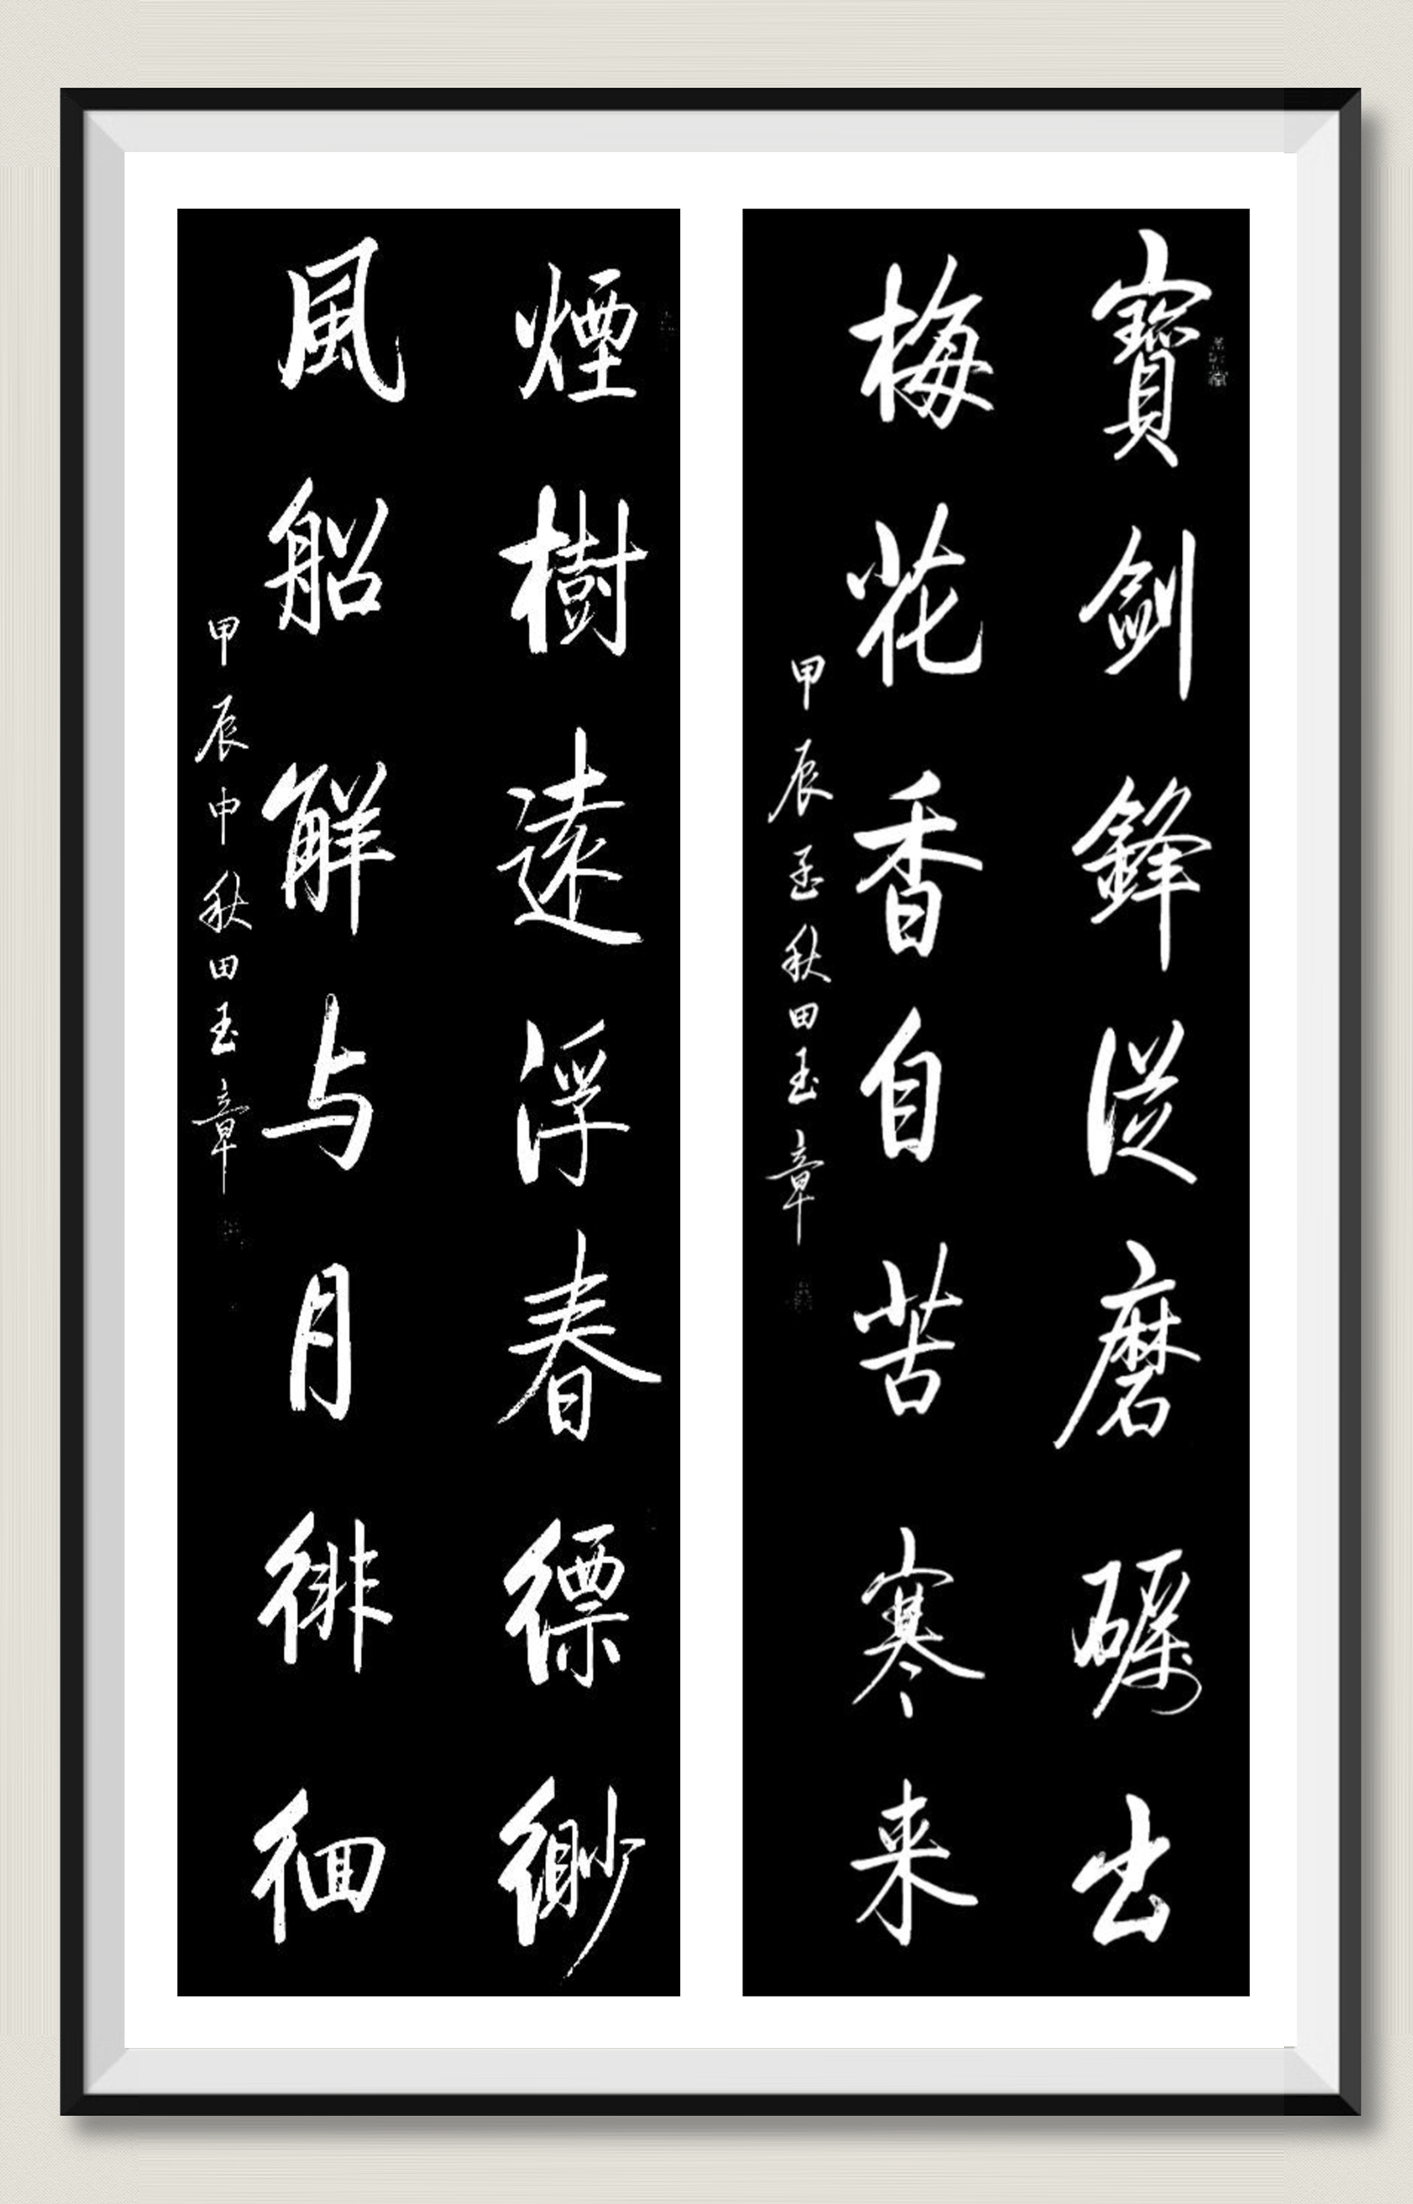 寶劍鋒從磨礪出
梅花香自苦寒来
甲辰孟秋田玉章
煙樹遠浮春縹緲
風船觧与月徘徊
甲辰中秋田玉章